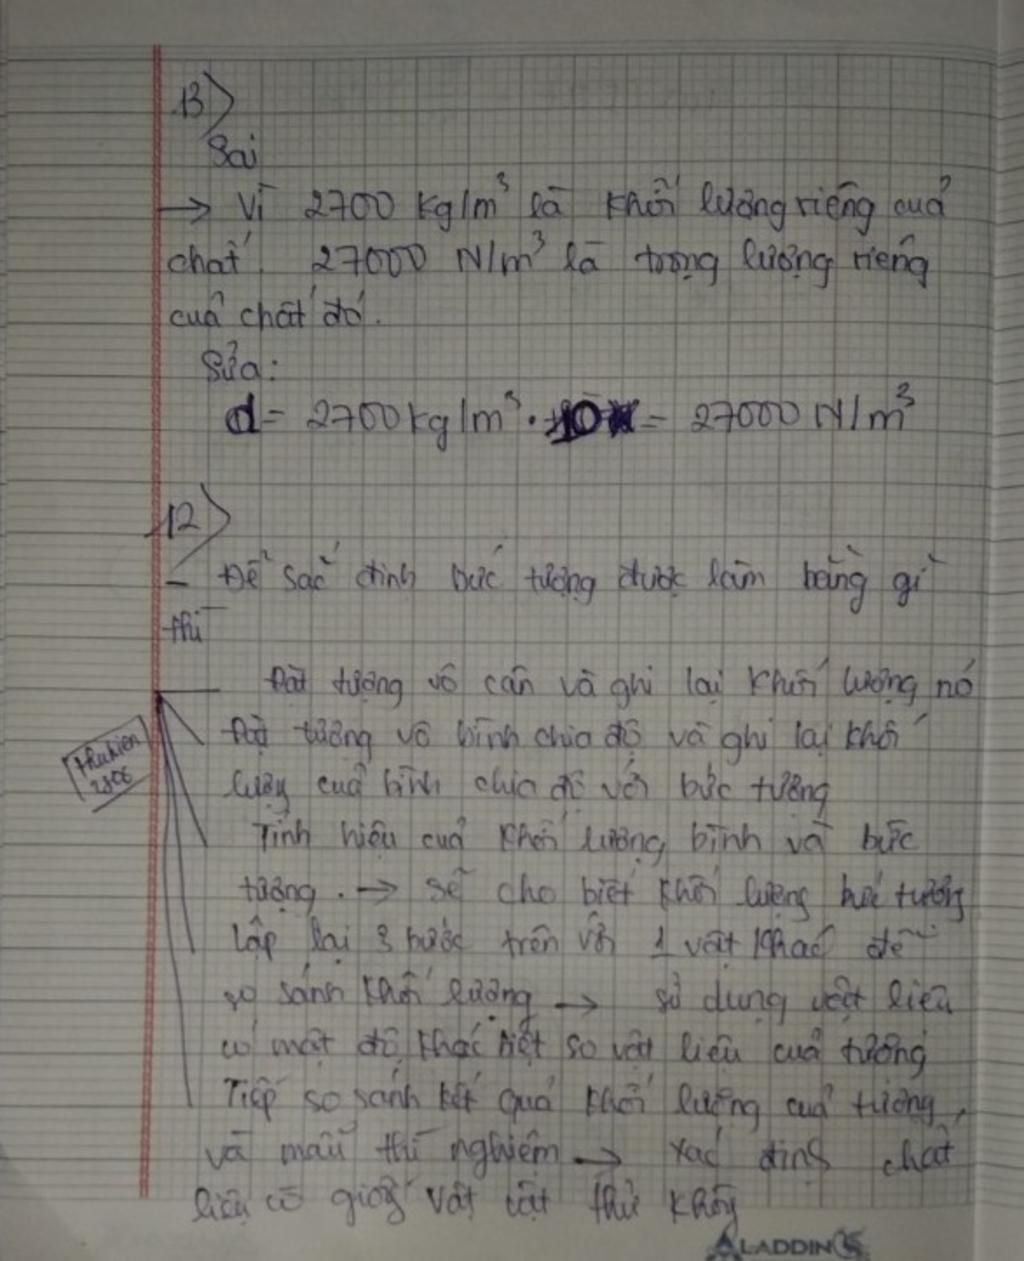 13)
Sai
→ Vì 2700 kg/m³ là khối lượng riêng cuả
chất. 27000 N/m³ là trọng lượng riêng
cuả chất đó.
Sửa:
d = 2700 kg/m³ . 10 = 27000 N/m³
12)
- Để sác định bức tượng được làm bằng gì
thì
Đặt tượng vô cân và ghi lại khối lượng nó
Đặt tượng vô bình chia độ và ghi lại khối
lượng cuả bình chia độ với bức tượng
thuhien
2806
Tính hiệu cuả khối lượng bình và bức
tượng. → sẽ cho biết khối lượng bức tượng
lập lại 3 bước trên với 1 vật khác để
so sánh khối lượng → sử dụng vật liệu
có mật độ khác biệt so vật liệu cuả tượng
Tiếp so sánh kết quả khối lượng cuả tượng,
và mẫu thí nghiệm → xác định chất
liệu có giống vật thử không
ALADDIN